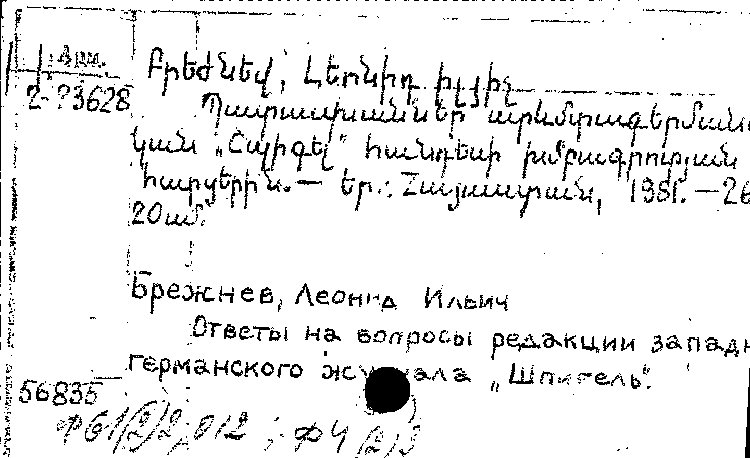 Արմ.
2-93628
Բրեժնև, Լեոնիդ Իլյիչ
Պատասխաններ արևմտագերման
կան „Շպիգել" հանդեսի խմբագրության
հարցերին.— Եր.: Հայաստան, 1981. — 26
20սմ.
Брежнев, Леонид Ильич
Ответы на вопросы редакции запад
германского журнала „Шпигель".
56835